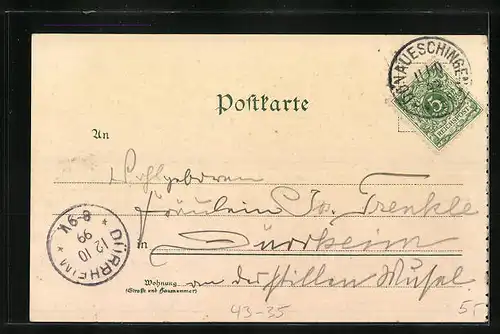 DONAUESCHINGEN
5
REICHSPOST
Postkarte
An
Wohlgeboren
Fräulein Jos. Trenkle
in Dürrheim
DÜRRHEIM
12 10
99
8-9V
Wohnung an der stillen Musel
(Straße und Hausnummer)
43-35
5,-